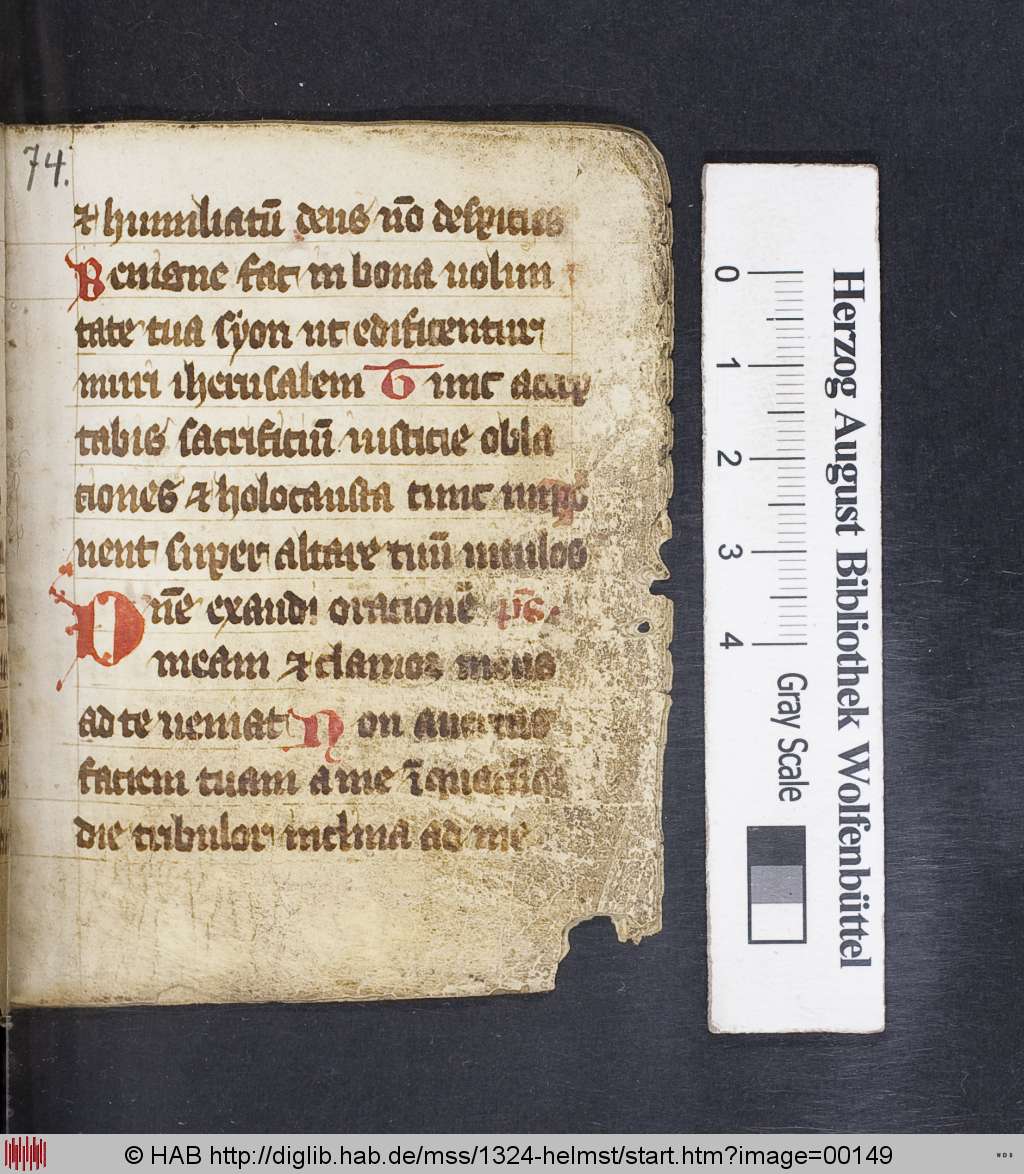 74.
⁊ humiliatū deus nō despicies
Benigne fac in bona uolun
tate tua syon ut edificentur
muri iherusalem Tunc accep
tabis sacrificiū iusticie obla
tiones ⁊ holocausta tunc inpo
nent super altare tuū uitulos
Dn̄e exaudi orationē p̄s.
meam ⁊ clamor meus
ad te ueniat Non auertas
faciem tuam a me ī quacūq
die tribulor inclina ad me
0 1 2 3 4
Gray Scale
Herzog August Bibliothek Wolfenbüttel
© HAB http://diglib.hab.de/mss/1324-helmst/start.htm?image=00149